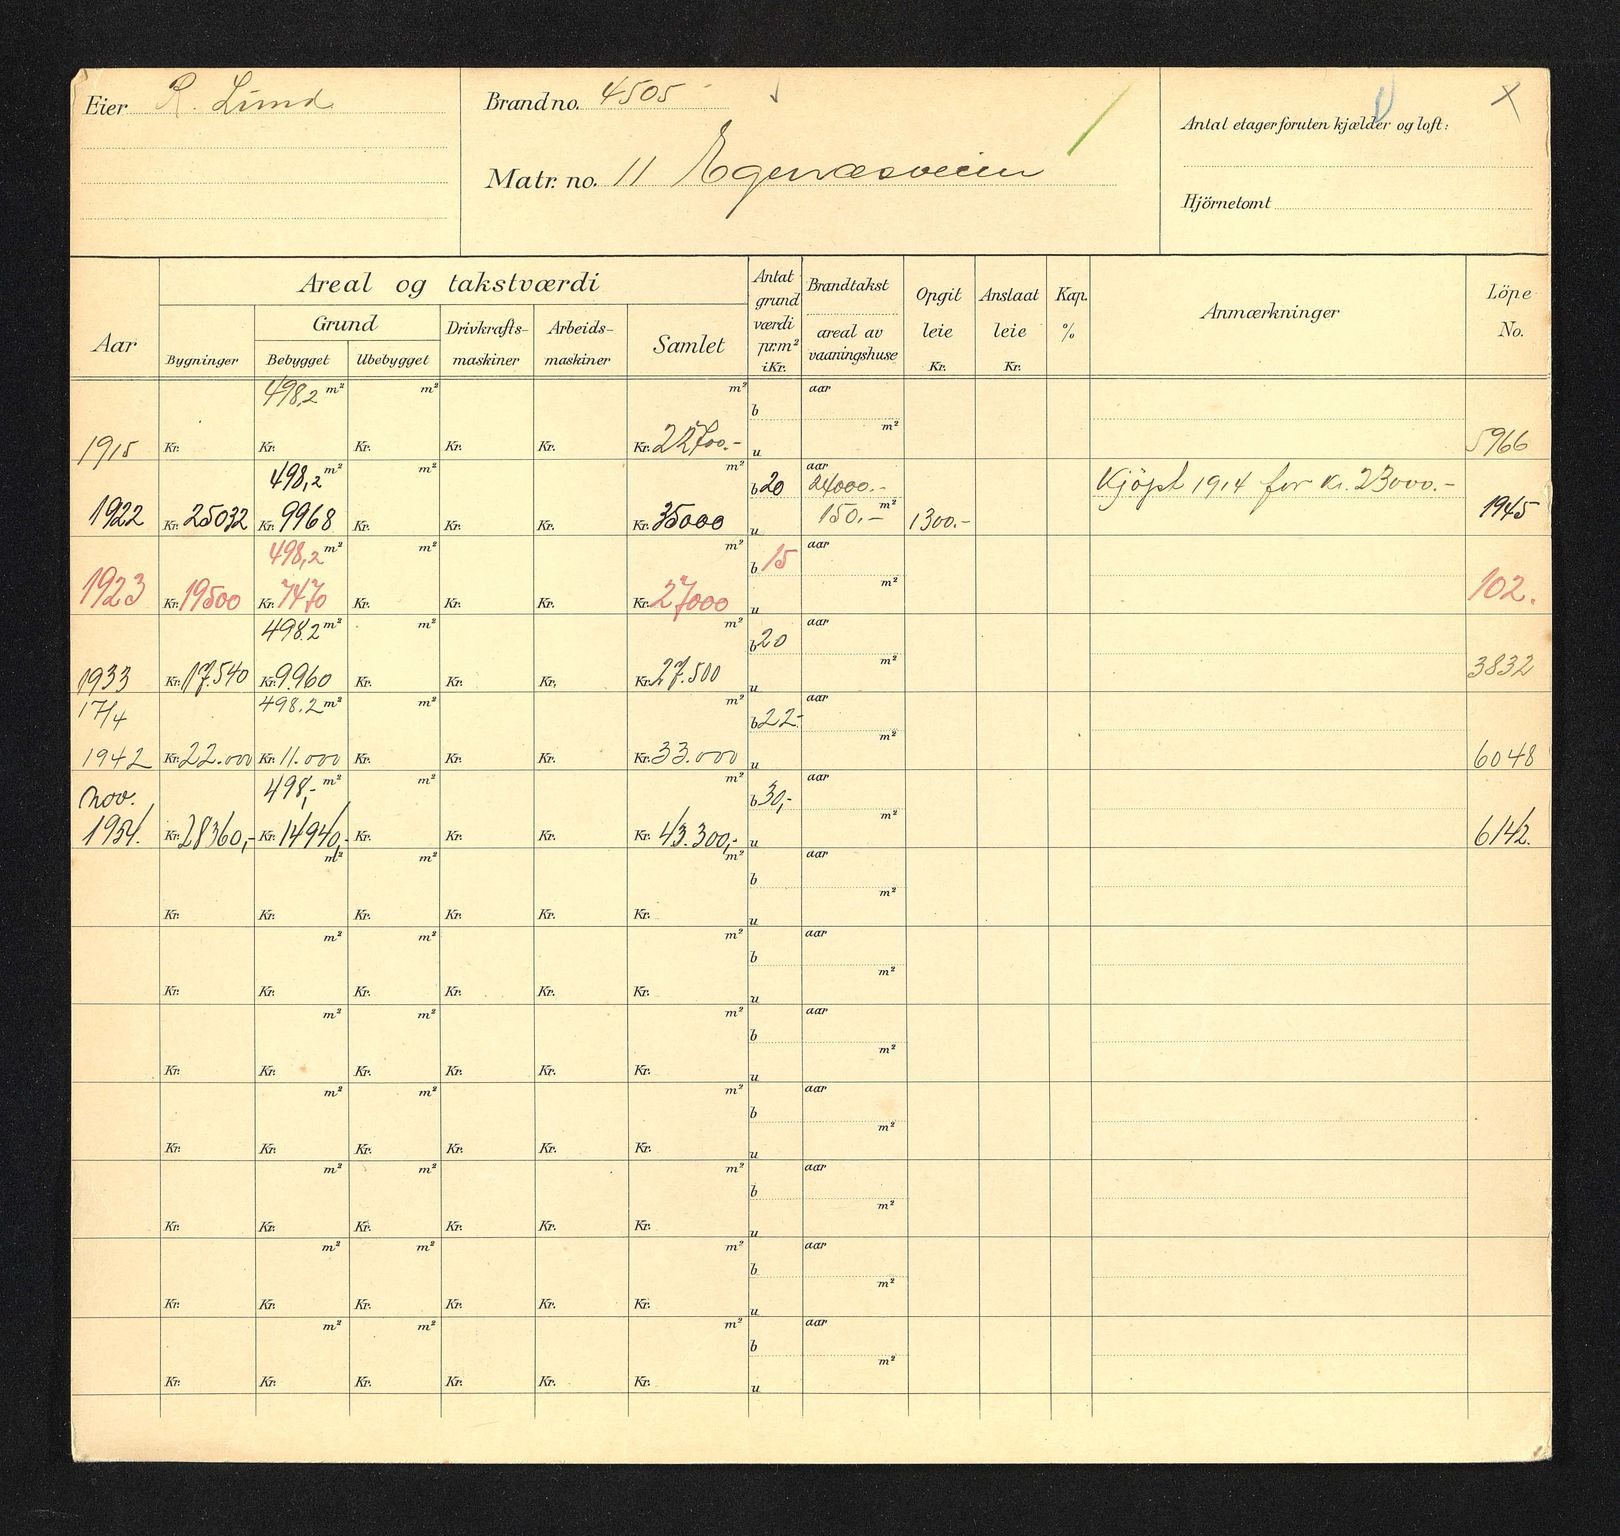 Eier R. Lund
Brand no. 4505
Matr. no. 11 Egenæsveien
Antal etager foruten kjælder og loft:
Hjörnetomt
Aar
Areal og takstværdi
Bygninger
Grund
Bebygget
Ubebygget
Drivkrafts-
maskiner
Arbeids-
maskiner
Samlet
Antat
grund
værdi
pr.m²
i Kr.
Brandtakst
areal av
vaaningshuse
Opgit
leie
Kr.
Anslaat
leie
Kr.
Kap.
%
Anmærkninger
Löpe
No.
498,2 m² m² m² b aar
1915 Kr. Kr. Kr. Kr. Kr. Kr. 22700.- u m² 5966
498,2 m² m² m² b 20 aar 24000.- Kjöpt 1914 for Kr. 23000.-
1922 Kr. 25032 Kr. 9968 Kr. Kr. Kr. Kr. 35000 u 150,- m² 1300.- 1945
498,2 m² m² m² b 15 aar
1923 Kr. 19500 Kr. 7470 Kr. Kr. Kr. Kr. 27000 u m² 102.
498.2 m² m² m² b 20 aar
1933 Kr. 17.540 Kr. 9.960 Kr. Kr. Kr. Kr. 27.500 u m² 3832
17/4 498.2 m² m² m² b 22- aar
1942 Kr. 22.000 Kr. 11.000 Kr. Kr. Kr. Kr. 33.000 u m² 6048
nov. 498,- m² m² m² b 30,- aar
1954. Kr. 28360,- Kr. 14940,- Kr. Kr. Kr. Kr. 43.300,- u m² 6142.
m² m² m² b aar
Kr. Kr. Kr. Kr. Kr. Kr. u m²
m² m² m² b aar
Kr. Kr. Kr. Kr. Kr. Kr. u m²
m² m² m² b aar
Kr. Kr. Kr. Kr. Kr. Kr. u m²
m² m² m² b aar
Kr. Kr. Kr. Kr. Kr. Kr. u m²
m² m² m² b aar
Kr. Kr. Kr. Kr. Kr. Kr. u m²
m² m² m² b aar
Kr. Kr. Kr. Kr. Kr. Kr. u m²
m² m² m² b aar
Kr. Kr. Kr. Kr. Kr. Kr. u m²